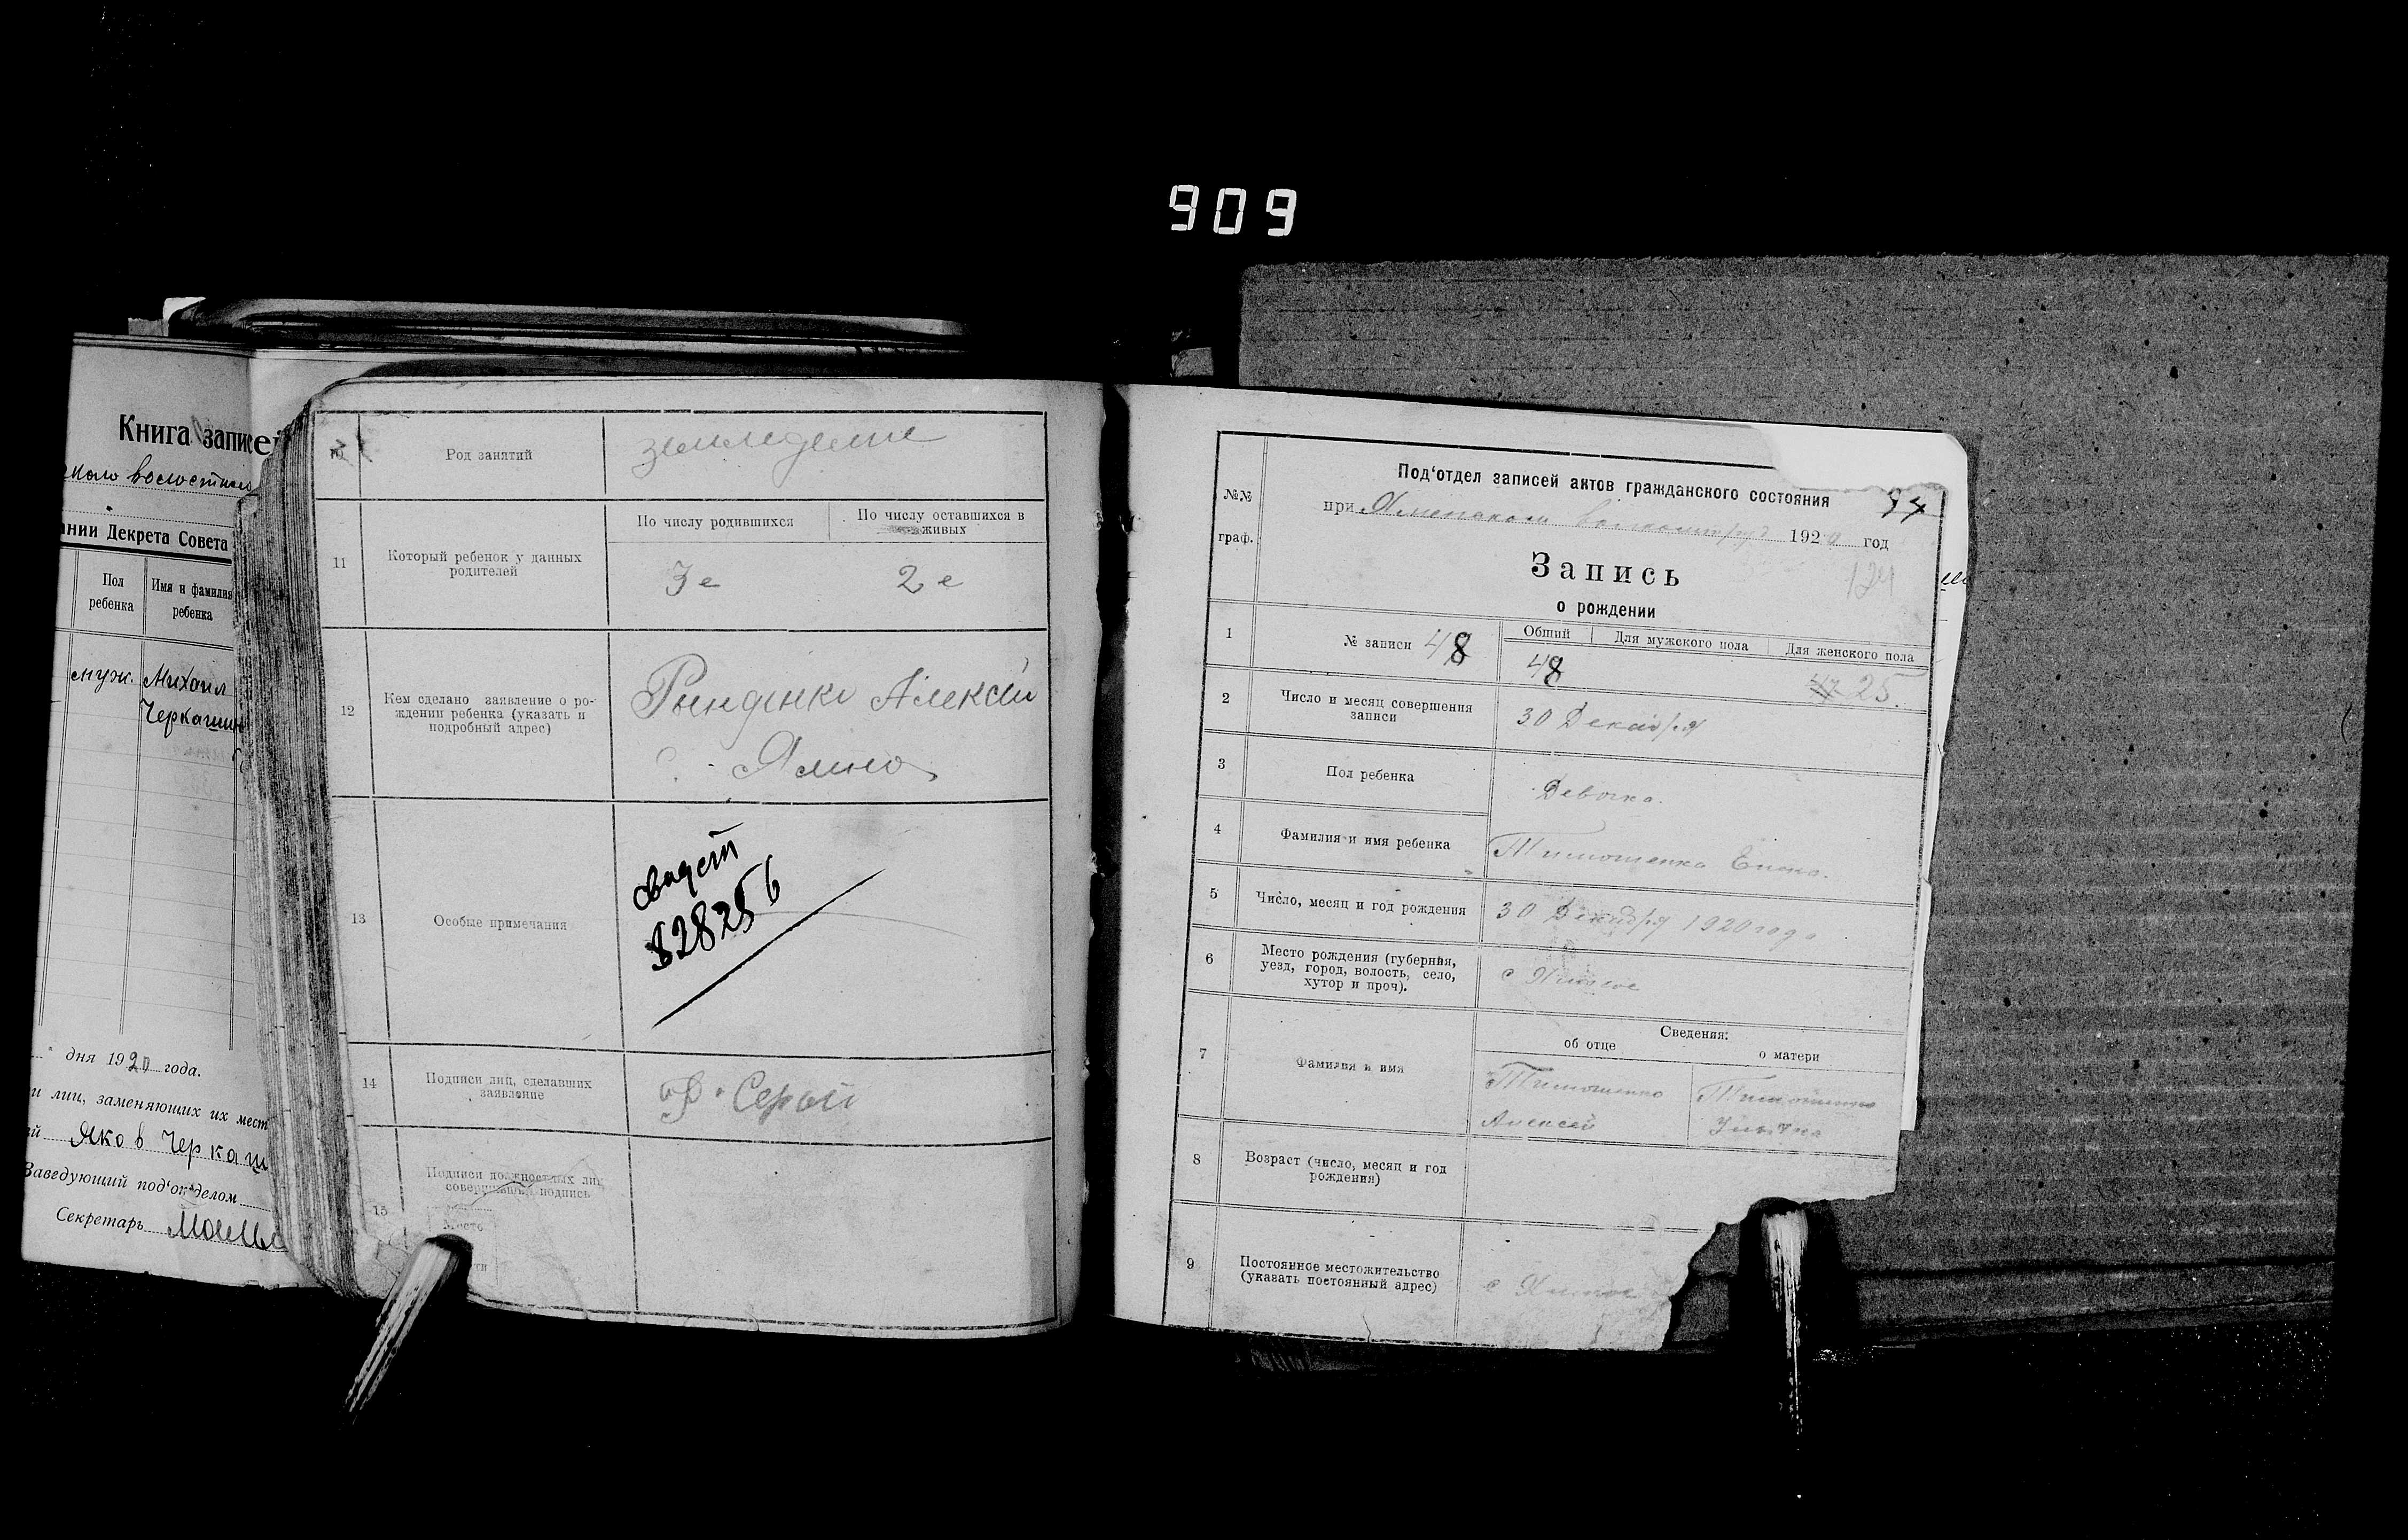 909
Книга записей
Декрета Совета
Пол
ребенка
Имя и фамилия
ребенка
муж.
Михаил
дня 1920 года.
и лиц, заменяющих их мест
Яков Черкаш
Заведующий под'отделом
Секретарь
10
Род занятий
земледелие
11
Который ребенок у данных
родителей
По числу родившихся
По числу оставшихся в
живых
3е
2е
12
Кем сделано заявление о ро-
ждении ребенка (указать и
подробный адрес)
Алексей
с. Ямно
13
Особые примечания
свидет
828256
14
Подписи лиц, сделавших
заявление
Серой
15
Подписи должностных лиц
подпись
Место
№№
граф.
Под'отдел записей актов гражданского состояния
94
при 1920 год
Запись
124
о рождении
1
№ записи 48
Общий
Для мужского пола
Для женского пола
48
25.
2
Число и месяц совершения
записи
30 Декабря
3
Пол ребенка
Девочка.
4
Фамилия и имя ребенка
Тимошенко Елена.
5
Число, месяц и год рождения
30 Декабря 1920 года
6
Место рождения (губерния,
уезд, город, волость, село,
хутор и проч).
с
Сведения:
7
Фамилия и имя
об отце
о матери
Тимошенко
Тимошенко
Алексей
8
Возраст (число, месяц и год
рождения)
9
Постоянное местожительство
(указать постоянный адрес)
с